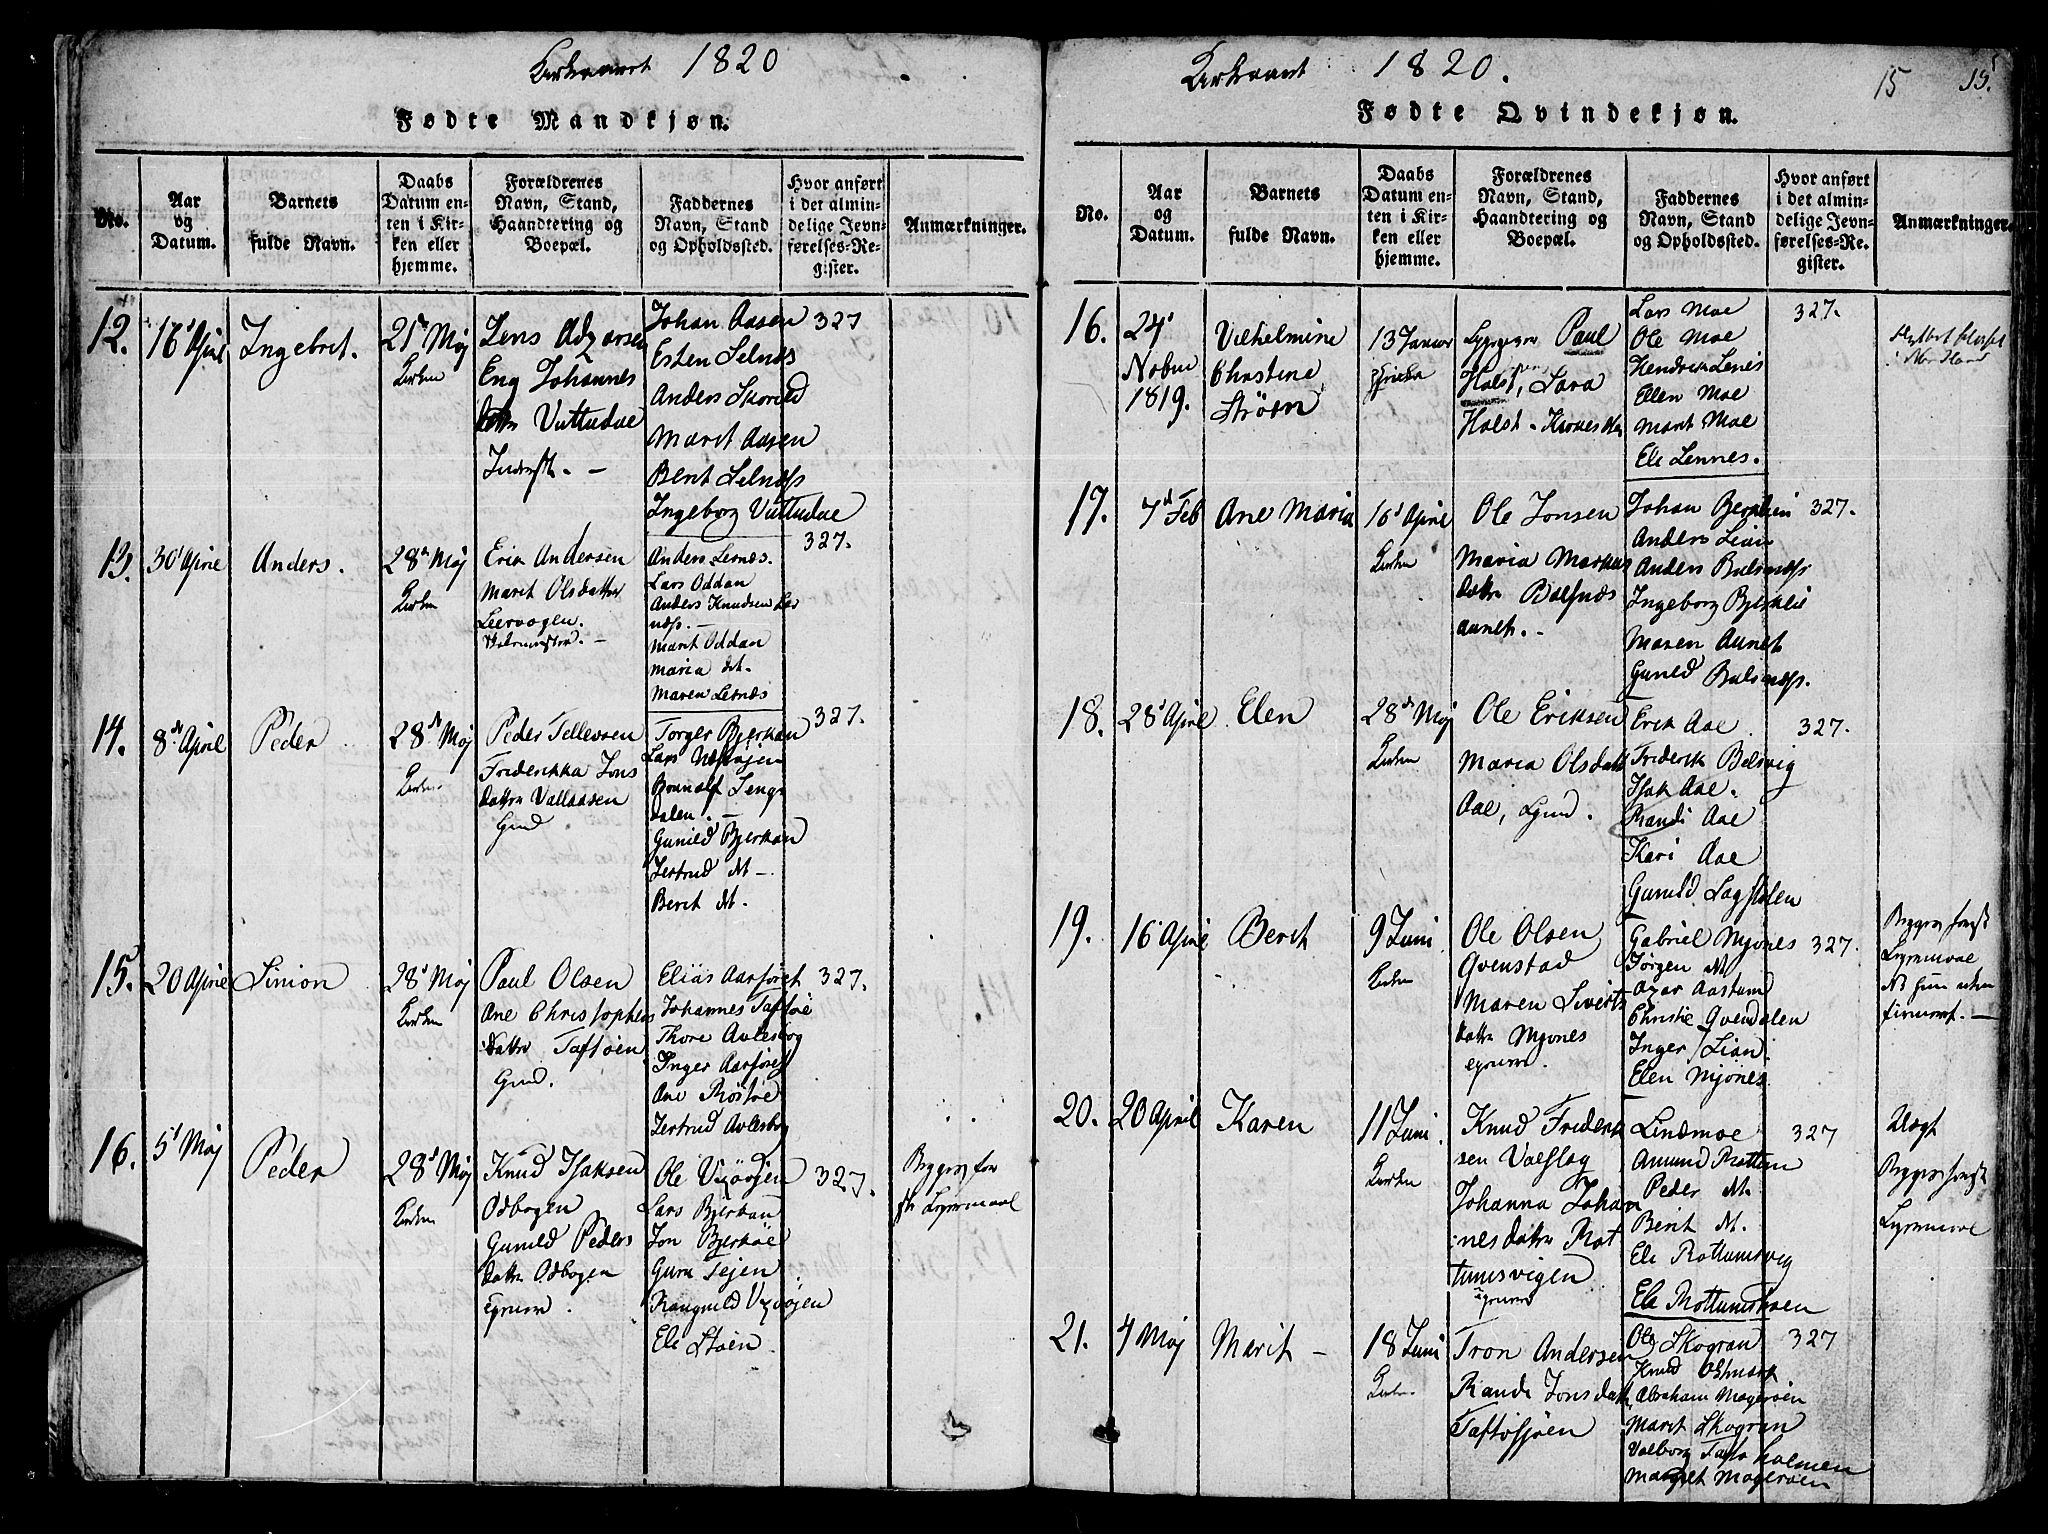 Kirkeaaret 1820
Fødte Mandkjøn.
No.
Aar
og
Datum.
Barnets
fulde Navn.
Daabs
Datum en-
ten i Kir-
ken eller
hjemme.
Forældrenes
Navn, Stand,
Haandtering og
Boepæl.
Faddernes
Navn, Stand
og Opholdssted.
Hvor anført
i det almin-
delige Jevn-
førelses-Re-
gister.
Anmærkninger.
12.
16 April
Ingebret.
21 Maj
Kirken
Jens
Eng Johannes
datter Vuttudae
Johan Aasen
Esten Selnæs
Anders Skorild
Maret Aasen
Berit Selnæss
Ingeborg Vuttudae
327
13.
30 April
Anders.
28 Maj
Kirken
Erik Andersen
Maret Olsdatter
Leervogen.
Anders Lernæs.
Lars Oddan
Anders Knudsen Ler
næss. —
Marit Oddan
Maria dt.
Maren Lernæs
327.
14.
8de April
Peder
28de Maj
Kirken
Peder Tellevsen
Friderikka Jons
datter Vallaasen
Gmd
Torger Bjerkan
Lars
Dalen. —
Gunild Bjerkan
Jertrud dt —.
Beret dt.
327.
15.
20 April
Simon
28 Maj
Kirken
Paul Olsen
Ane Christophers
datter Taftøen
Gmd.
Elias Aarføret
Johannes Taftøe
Thore Avlesbog
Inger Aarføret
Ane Røstøe
Jertrud Avlesbog
327.
16.
5 Maj
Peder
28 Maj
Kirken
Knud Isaksen
Odbogen
Gunild Peders
datter Odbogen
Ole Vaagen
Lars Bjerkan
Jon Bjerkøe
Guru Tejen
Ele Støen
327.
Kirkeaaret 1820.
15 15.
Fødte Qvindekjøn.
No.
Aar
og
Datum.
Barnets
fulde Navn.
Daabs
Datum en-
ten i Kir-
ken eller
hjemme.
Forældrenes
Navn, Stand,
Haandtering og
Boepæl.
Faddernes
Navn, Stand
og Opholdssted.
Hvor anført
i det almin-
delige Jevn-
førelses-Re-
gister.
Anmærkninger.
16.
24
Nobvr
1819.
Vilhelmine
Christine
Strøm
13 Januar
Paul
Holst, Sara
Holst
Lars Moe
Ole Moe
Hendrik Lenes
Ellen Moe
Marit Moe
Ele Lennes.
327.
17.
7 Feb
Ane Maria
16 April
Kirken
Ole Jonsen
Maria Markus
datter Balsnæs
aunet. —
Johan Berklien
Anders Lian
Anders Balsnæss
Ingeborg Bjerklie
Maren Aunet
Gunild Balsnæss.
327.
18.
28 April
Elen
28de Maj
Kirken
Ole Eriksen
Maria Olsdatt
Aae, Gmd.
Erik Aae
Friderik Belsvig
Isak Aae.
Randi Aae
Kari Aae
Gunild
327.
19.
16 April
Beret
9 Juni
Kirken
Ole Olsen
Qvenstad
Maren Siverts
datter Mjønes
Gabriel Mjønes
Jørgen dt
Azar Aastum
Christie Qvendalen
Inger Lian.
Elen Mjønes
327.
20.
20 April
Karen
11 Juni
Kirken
Knud Friderik
sen Valslag
Johanna Johan
:nesdatter Rot
tumsvigen
Lindmoe
Amund Rottem
Peder dt.
Berit dt.
Ele Rottumsvig
Ele
327
21.
4 Maj
Marit —
18 Juni
Kirken
Tron Andersen
Randi Jonsdatt
Taftøsjøen
Ole Skogran
Knud Ostmark
Abraham Magerøen
Maret Skogran
Valborg Taftøholmen
Margret Magerøen
327